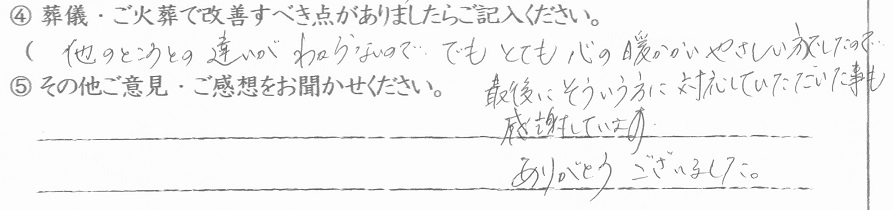 ④ 葬儀・ご火葬で改善すべき点がありましたらご記入ください。
( 他のところとの違いがわからないので… でもとても心の暖かいやさしい方でしたので…
⑤ その他ご意見・ご感想をお聞かせください。
最後にそういう方に対応していただいた事も
感謝しています。
ありがとうございました。